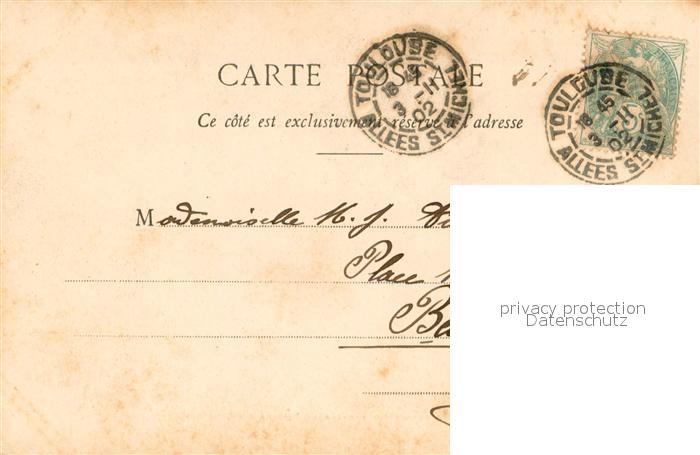 CARTE POSTALE
Ce côté est exclusivement réservé à l'adresse
TOULOUSE
18 45
3 -11
02
ALLEES ST MICHEL
TOULOUSE
18 45
3 -11
02
ALLEES ST MICHEL
Mademoiselle M. J.
Place
privacy protection
Datenschutz